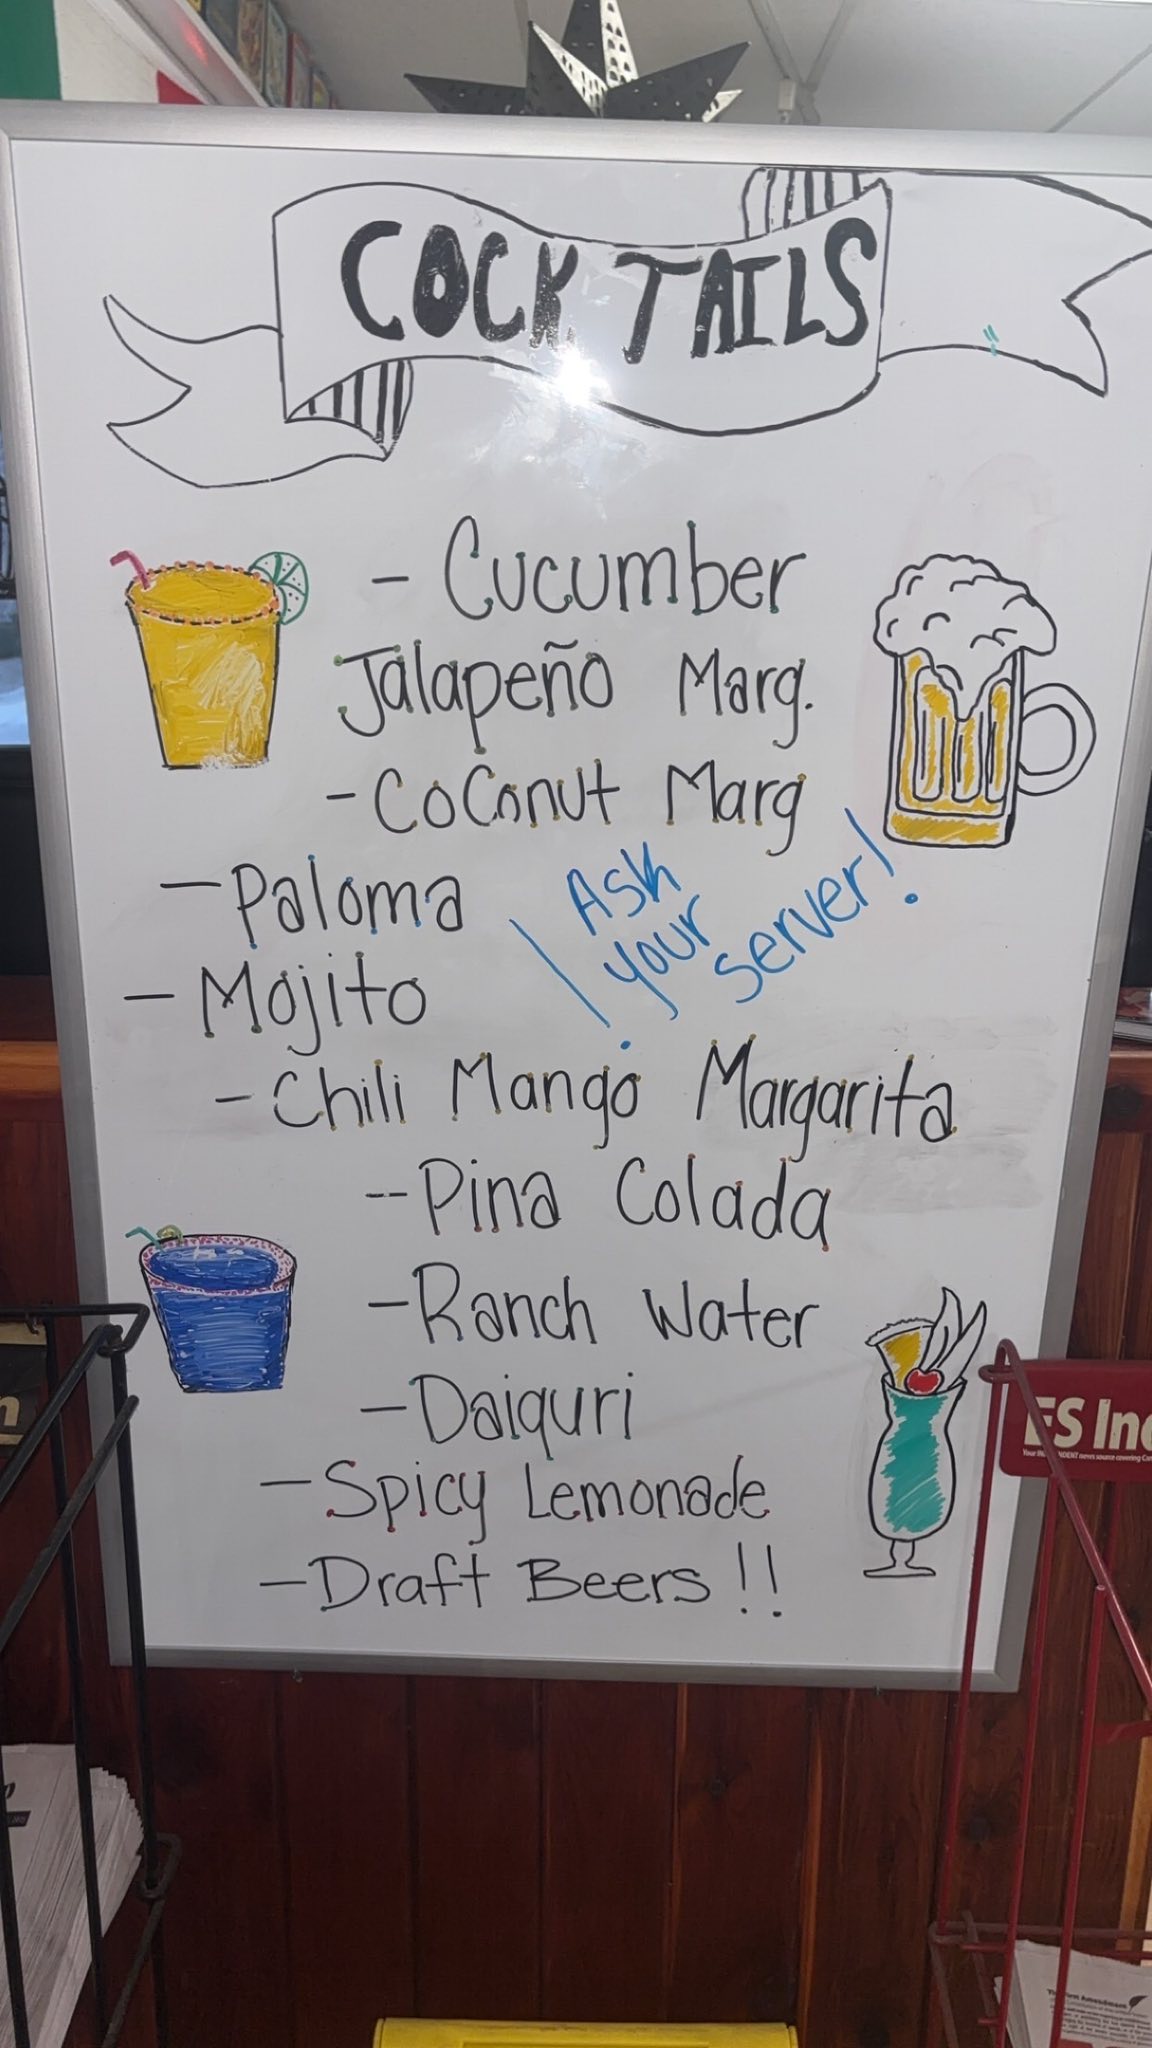 COCKTAILS
- Cucumber
Jalapeño Marg.
- Coconut Marg
- Paloma
¡Ask
your
server!
- Mojito
- Chili Mango Margarita
-- Pina Colada
- Ranch Water
- Daiquri
- Spicy Lemonade
- Draft Beers!!
ES In
The First Amendment